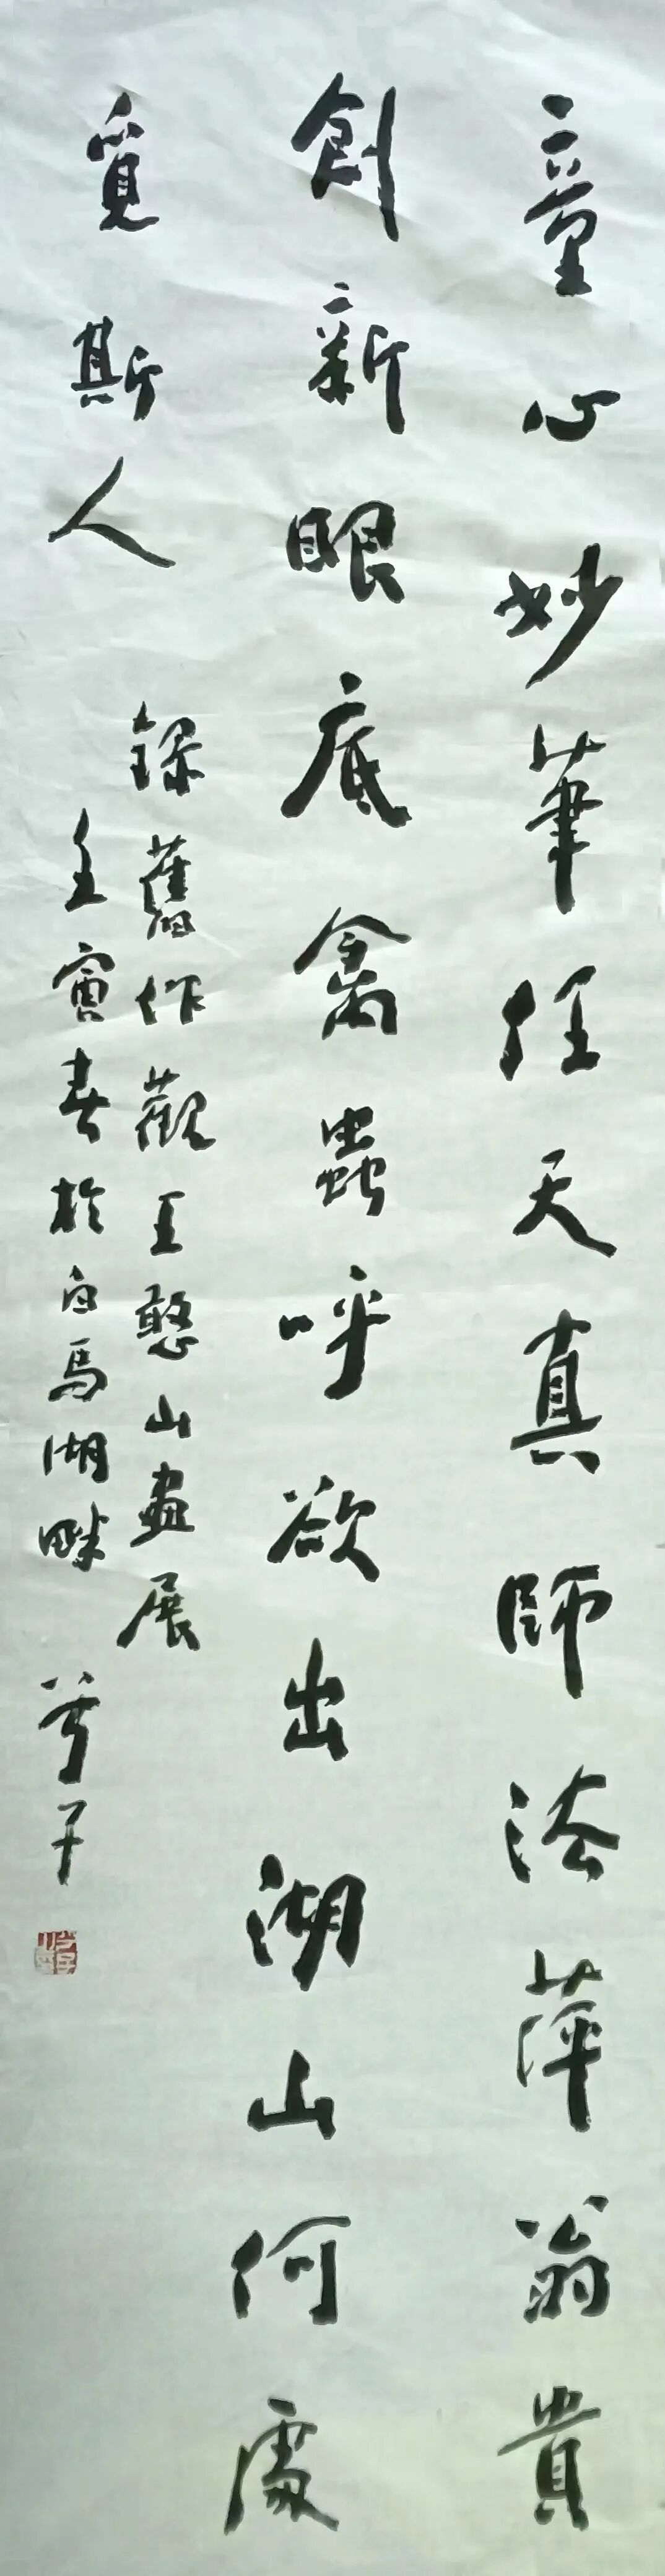 童心妙筆任天真師法萍翁貴
創新眼底禽蟲呼欲出湖山何處
覓斯人
錄舊作觀王憨山畫展
壬寅春於白馬湖畔 子